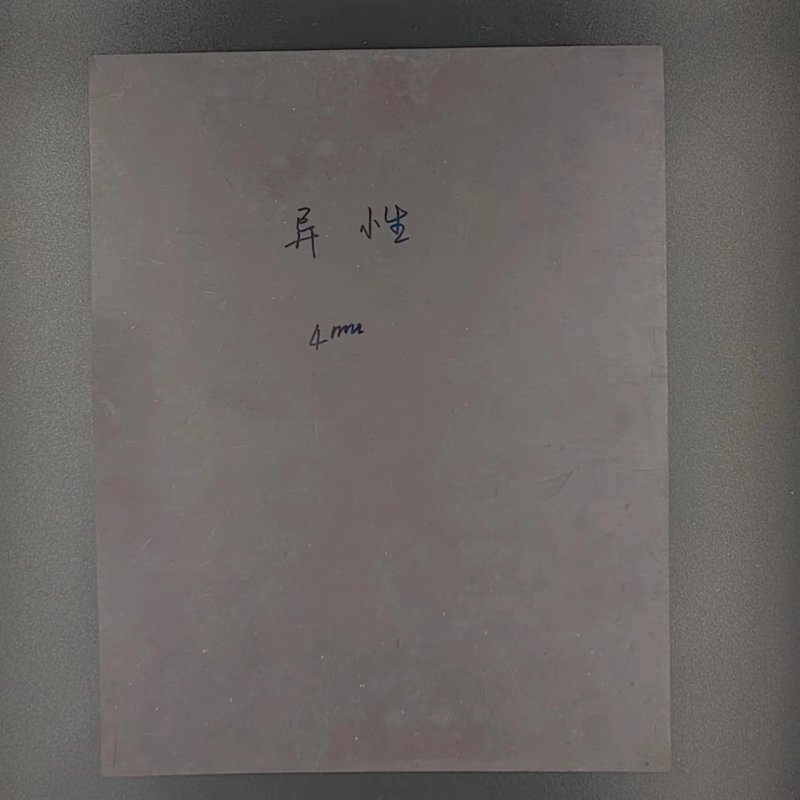 异 性
4mm